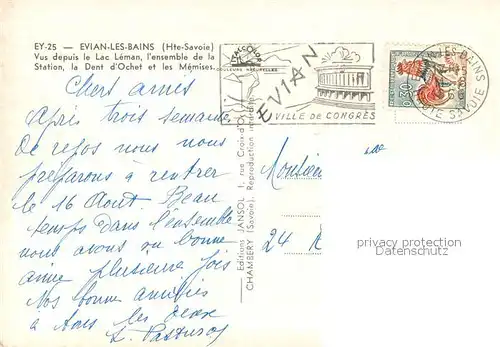 EY-25 — EVIAN-LES-BAINS (Hte-Savoie)
Vus depuis le Lac Léman, l'ensemble de la
Station, la Dent d'Ochet et les Mémises.
COULEURS NATURELLES
EVIAN
VILLE DE CONGRÈS
LES-BAINS
HTE SAVOIE
0,30
Chers amis
Après trois semaines
de repos nous nous
preparons à rentrer
le 16 Aout Beau
temps dans l'ensemble
nous avons eu bonne
amie plusieurs fois
Nos bonne amitiés
à tous les deux
Editions JANSOL, 1 rue Croix-d'Or
CHAMBERY (Savoie). Reproduction interdite
Monsieur
24 R
privacy protection
Datenschutz